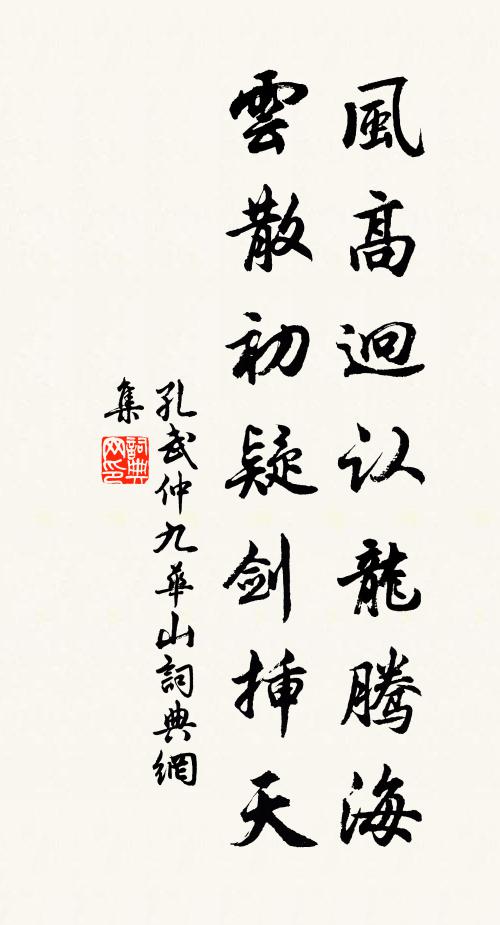 風高迴认龍騰海
雲散初疑劍挿天
孔武仲九華山詞典網
集
詞典
网印